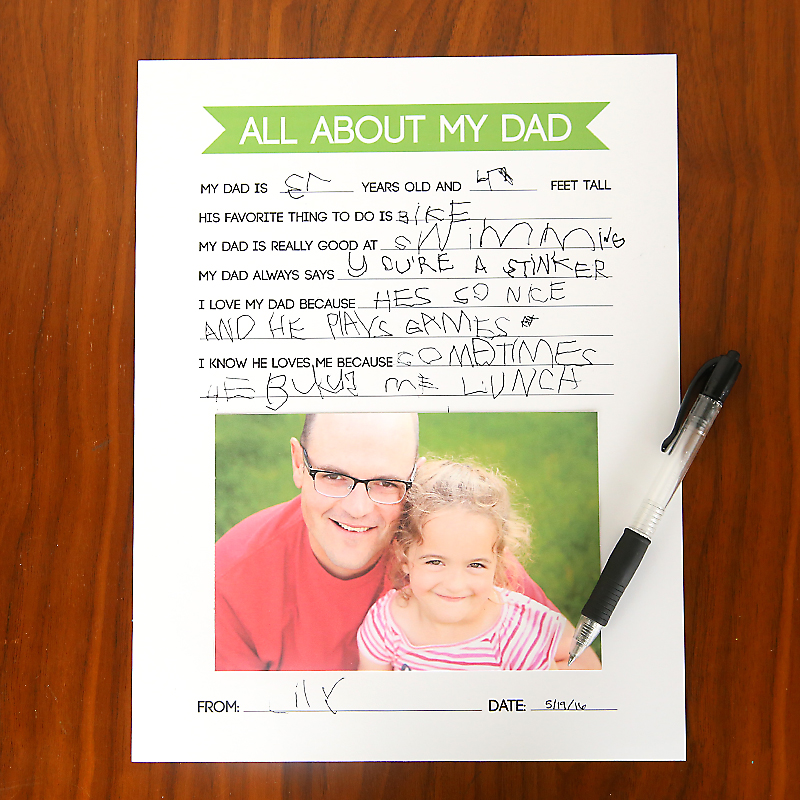 ALL ABOUT MY DAD
MY DAD IS YEARS OLD AND FEET TALL
HIS FAVORITE THING TO DO IS BIKE
MY DAD IS REALLY GOOD AT SWIMMING
MY DAD ALWAYS SAYS YOU'RE A STINKER
I LOVE MY DAD BECAUSE HES SO NICE
AND HE PLAYS GAMES
I KNOW HE LOVES ME BECAUSE SOMETIMES
HE ME LUNCH
FROM: Lily DATE: 5/19/16